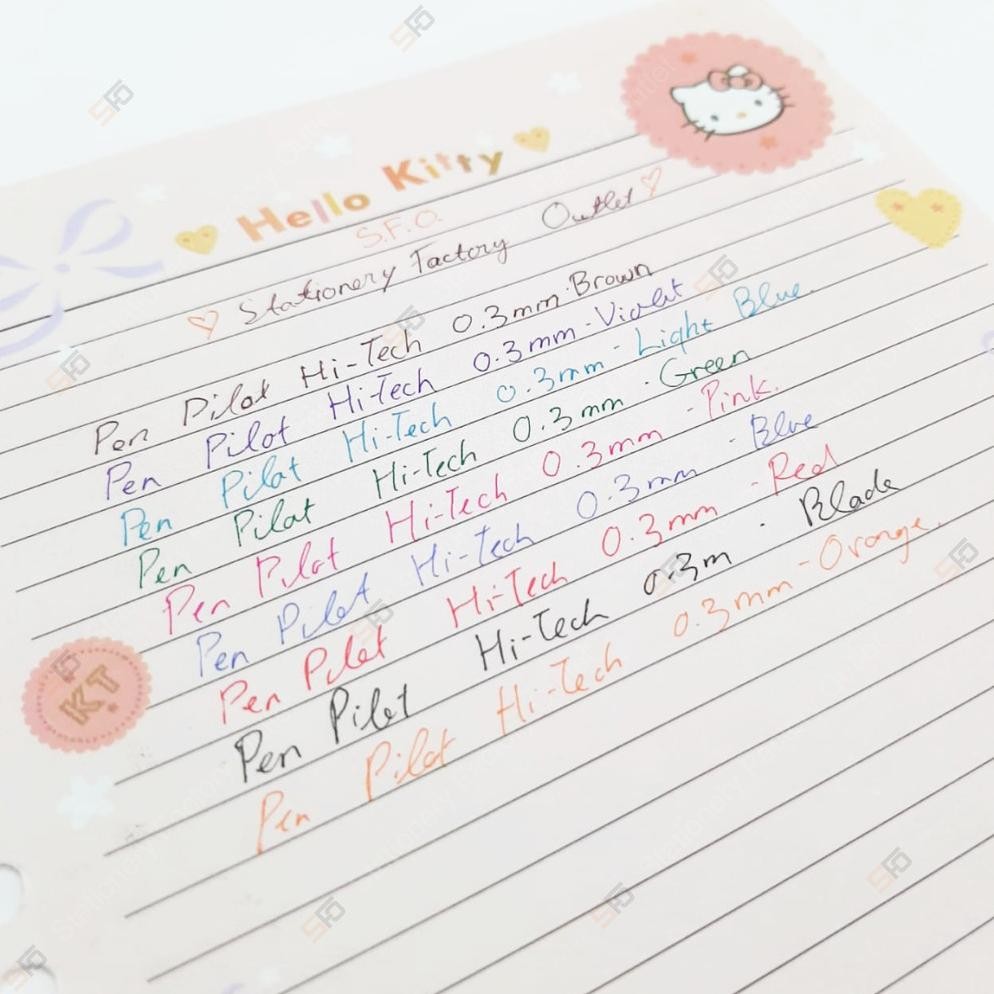 Hello Kitty
S.F.O.
Stationery Factory Outlet
Pen Pilot Hi-Tech 0.3mm. Brown
Pen Pilot Hi-Tech 0.3mm - Violet
Pen Pilot Hi-Tech 0.3mm - Light Blue.
Pen Pilot Hi-Tech 0.3mm . Green
Pen Pilot Hi-Tech 0.3mm - Pink.
Pen Pilot Hi-Tech 0.3mm - Blue
Pen Pilot Hi-Tech 0.3mm - Red
Pen Pilot Hi-Tech 0.3m . Black
Pen Pilot Hi-Tech 0.3mm - Orange.
KT